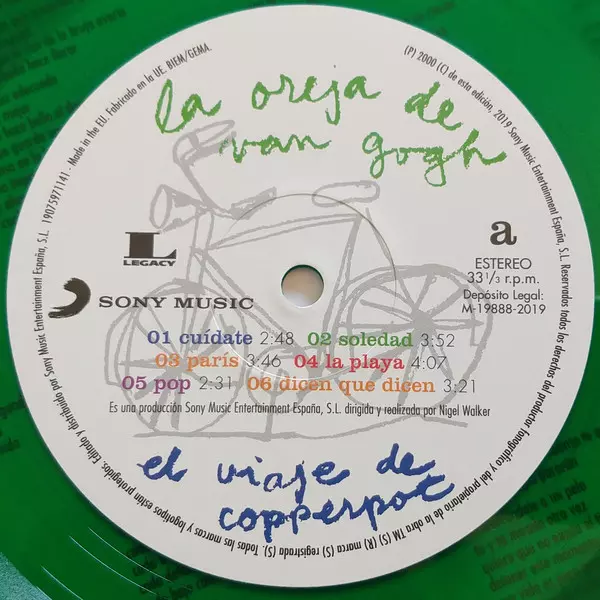 la oreja de
van gogh
Made in the EU. Fabricado en la UE. BIEM/GEMA.
(P) 2000 (C) de esta edición, 2019 Sony Music Entertainment España, S.L. Reservados todos los derechos del productor fonográfico y del propietario de la obra TM (S) (R) marca (S) registrada (S). Todas las marcas y logotipos están protegidos. Editado y distribuido por Sony Music Entertainment España, S.L. 19075971141
L
LEGACY
a
ESTEREO
33 1/3 r.p.m.
Depósito Legal:
M-19888-2019
SONY MUSIC
01 cuídate 2:48 02 soledad 3:52
03 parís 3:46 04 la playa 4:07
05 pop 2:31 06 dicen que dicen 3:21
Es una producción Sony Music Entertainment España, S.L. dirigida y realizada por Nigel Walker
el viaje de
copperpot